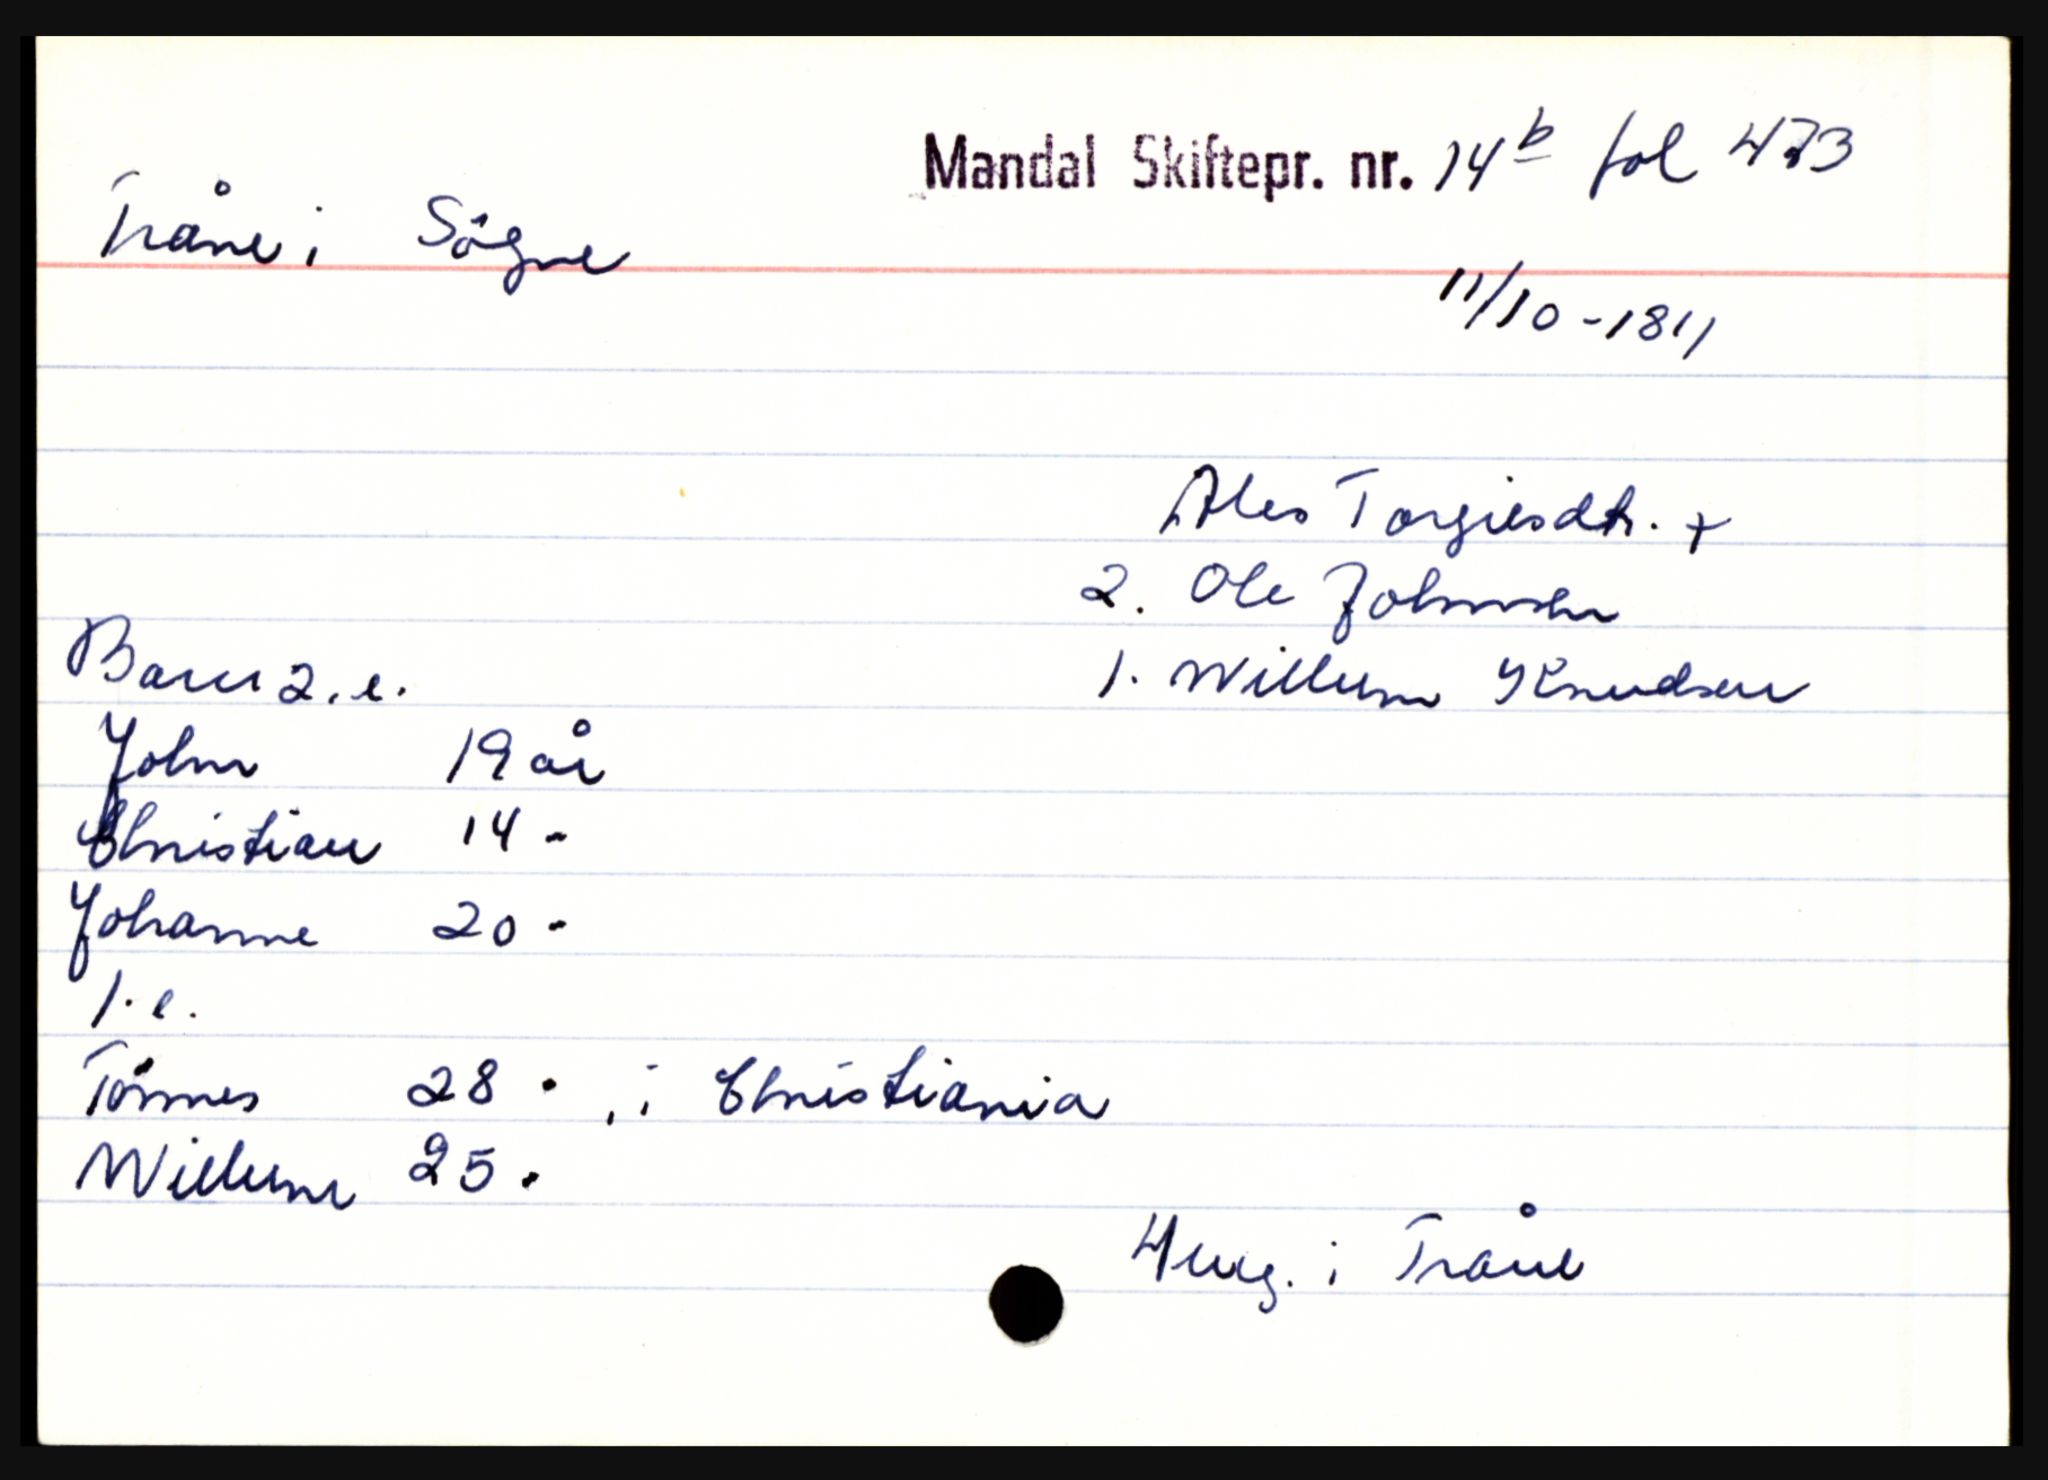 Mandal Skiftepr. nr. 14b fol 473
Tråne i Sögne
11/10-1811
Ales Torgiesdtr. +
2. Ole Johnsen
Barn 2. e.
1. Willum Knudsen
John 19 år
Christian 14 -
Johanne 20 -
1. e.
Tönnes 28 - , i Christiania
Willum 25 -
4 ung. i Tråne